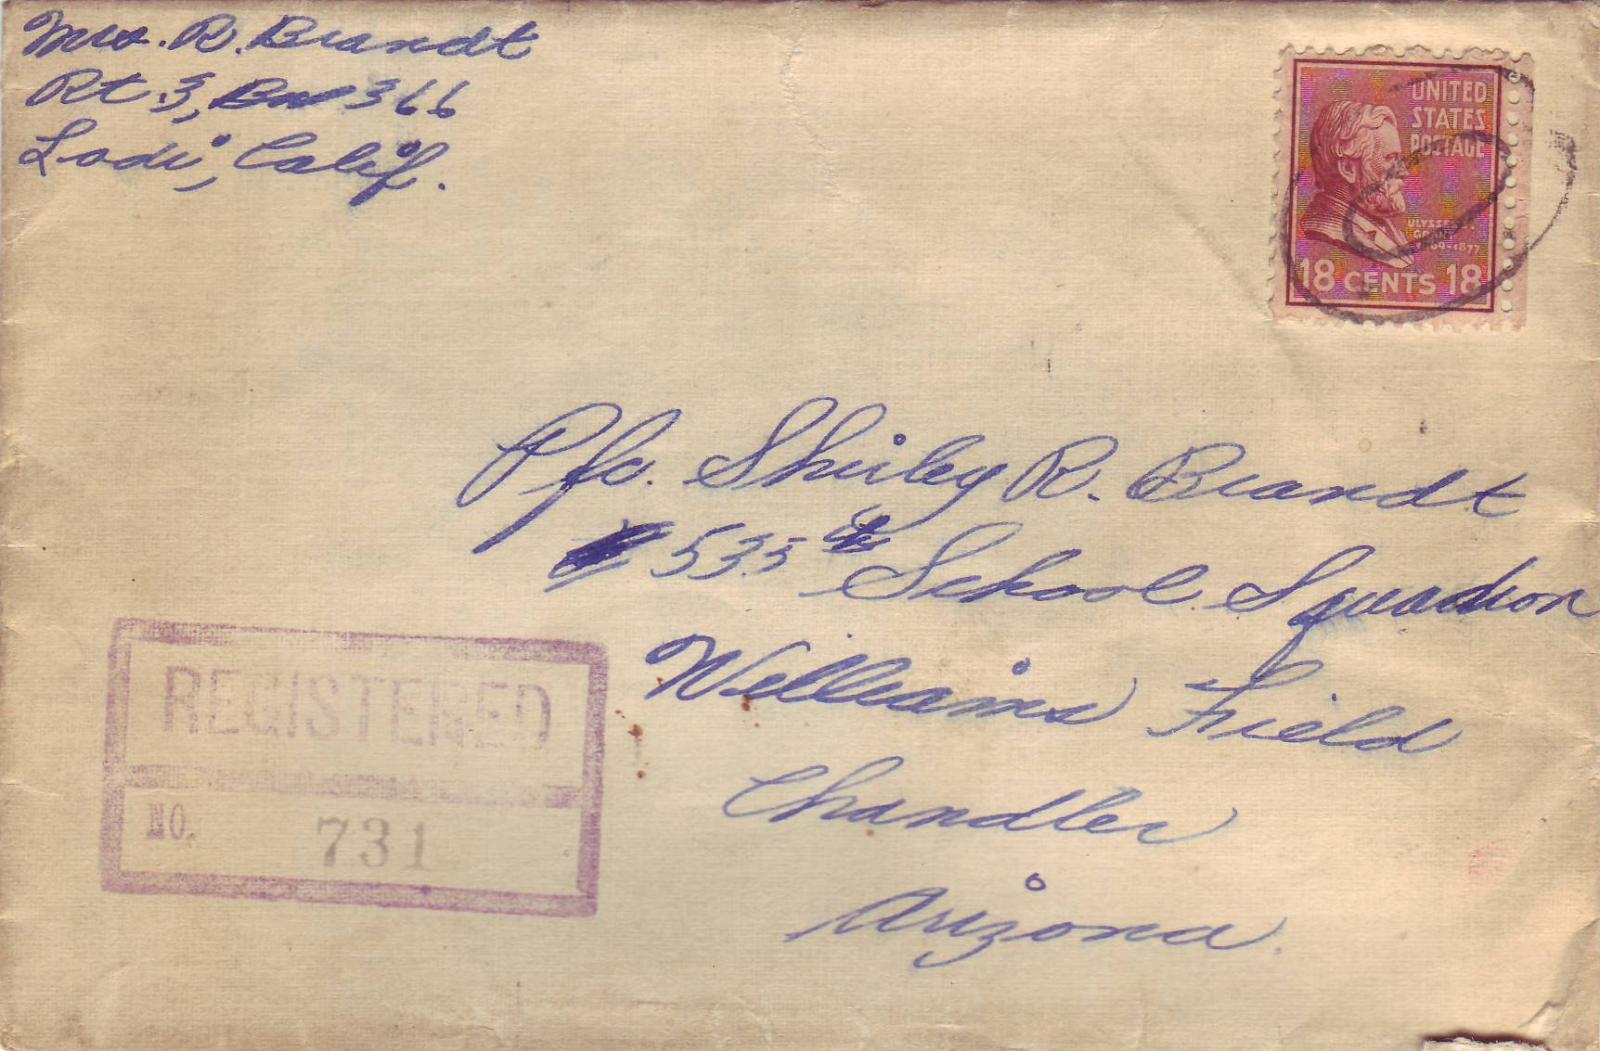 Mrs. R. Brandt
Rt 3, Box 366
Lodi, Calif.
UNITED
STATES
POSTAGE
ULYSSES S.
GRANT
1869-1877
18 CENTS 18
Pfc. Shirley R. Brandt
535th School Squadron
Williams Field
Chandler
Arizona
REGISTERED
NO. 731